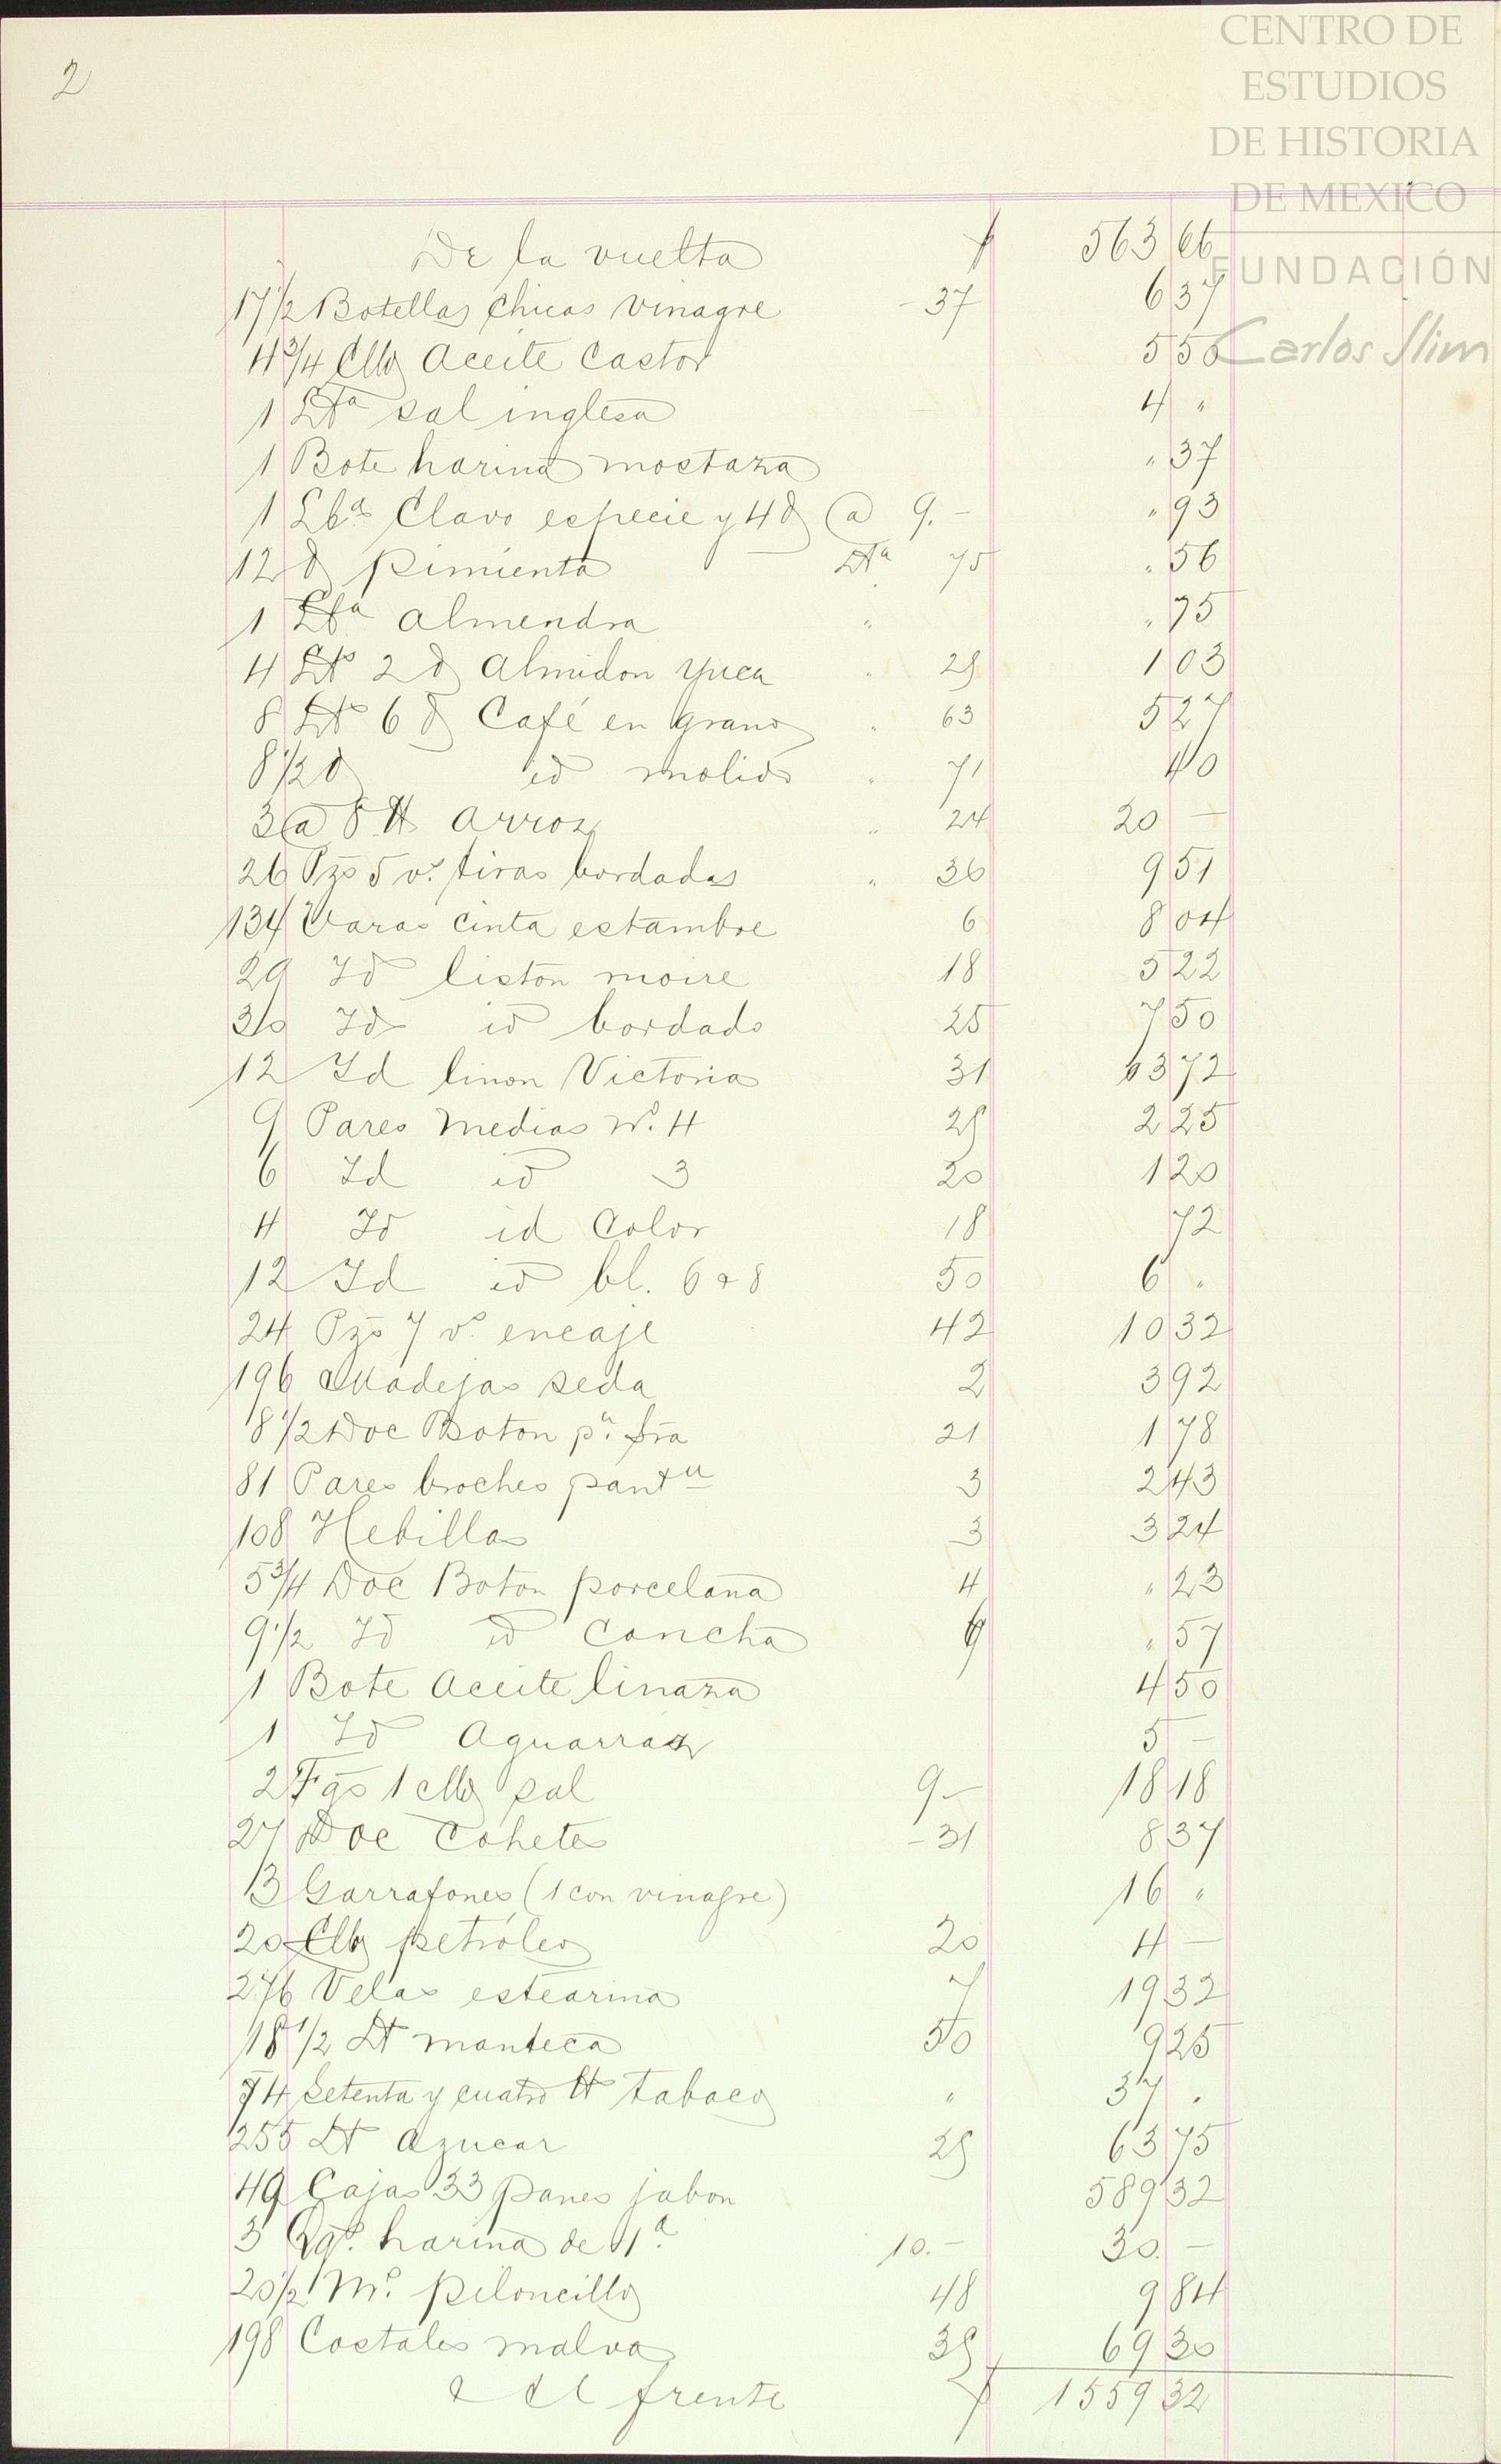 2
CENTRO DE
ESTUDIOS
DE HISTORIA
DE MEXICO
FUNDACIÓN
Carlos Slim
De la vuelta $ 563 66
17 1/2 Botellas chicas vinagre - 37 6 37
4 3/4 Aceite Castor 5 50
1 Lta sal inglesa 4 "
1 Bote harina mostaza " 37
1 Lba Clavo especie y 4 @ 9.- " 93
12 pimienta Lta 75 " 56
1 Lta almendra " " 75
4 Lts 2 almidon yuca " 25 1 03
8 Lts 6 Café en grano " 63 5 27
8 1/2 id molido " 71 40
3 @ 8 lt arroz " 24 20 -
26 Pzs 5 vs. tiras bordadas " 36 9 51
134 Varas cinta estambre 6 8 04
29 Id liston moire 18 5 22
30 Id id bordado 25 7 50
12 Id linon Victoria 31 3 72
9 Pares medias No. 4 25 2 25
6 Id id 3 20 1 20
4 Id id Color 18 72
12 Id id bl. 6 a 8 50 6 "
24 Pzs 7 vs encaje 42 10 32
196 Madejas seda 2 3 92
8 1/2 Doc Boton pa. Sra 21 1 78
81 Pares broches pantn 3 2 43
108 Hebillas 3 3 24
5 3/4 Doc Boton porcelana 4 " 23
9 1/2 Id id Concha 6 " 57
1 Bote Aceite linaza 4 50
1 Id Aguarras 5 -
2 Fgs 1 sal 9 - 18 18
27 Doc Cohetes - 31 8 37
3 Garrafones (1 con vinagre) 16 "
20 petróleo 20 4 -
276 Velas estearina 7 19 32
18 1/2 Lt manteca 50 9 25
74 Setenta y cuatro lt tabaco " 37 .
255 Lt azucar 25 63 75
49 Cajas 33 panes jabon 589 32
3 Qqs. harina de 1a. 10.- 30. -
20 1/2 Ms. piloncillo 48 9 84
198 Costales malva 35 69 30
Al frente $ 1559 32